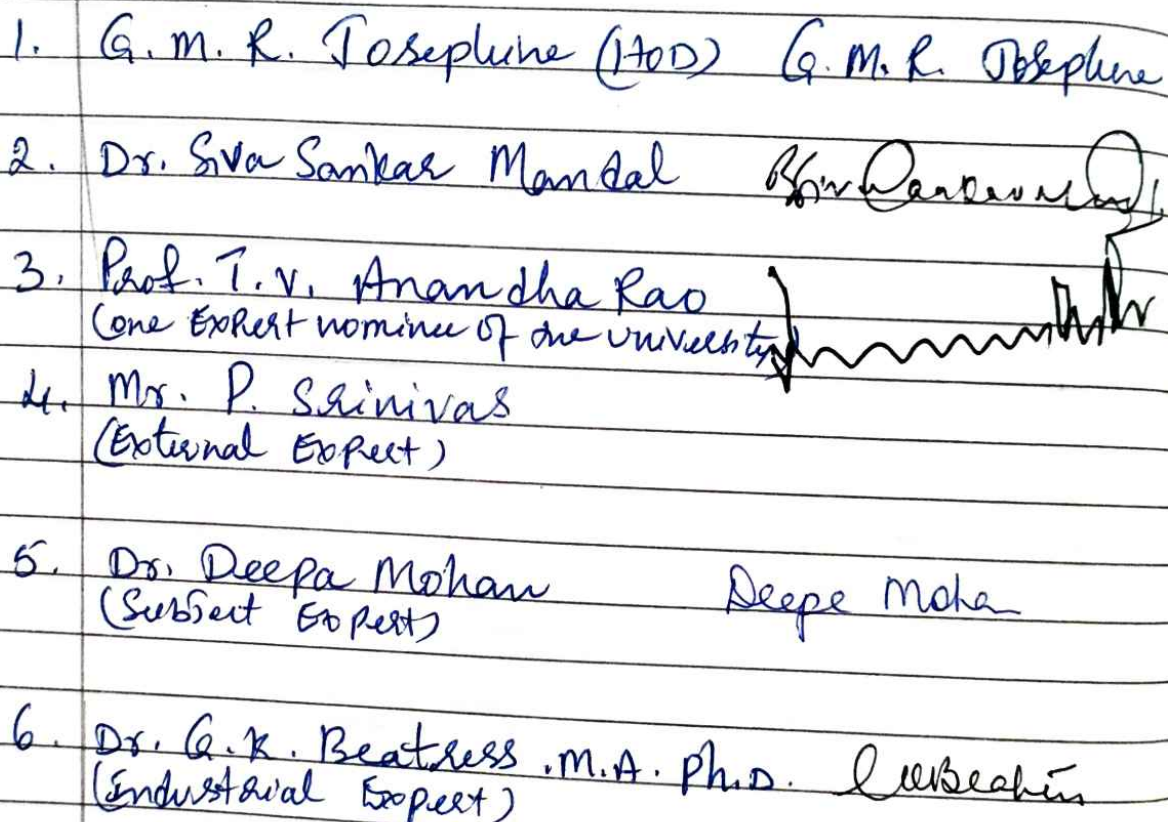 1. G. M. R. Josephine (HOD) G. M. R. Josephine
2. Dr. Siva Sankar Mandal
3. Prof. T. V. Anandha Rao
(one Expert nominee of the university)
4. Mr. P. Srinivas
(External Expert)
5. Dr. Deepa Mohan Deepa Mohan
(Subject Expert)
6. Dr. G. K. Beatress .M.A. Ph.D.
(Industrial Expert)